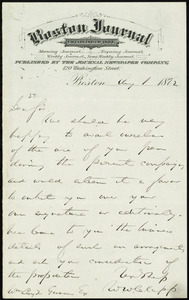 Boston Journal
Morning Journal, Evening Journal,
Weekly Journal, Semi-Weekly Journal.
PUBLISHED BY THE JOURNAL NEWSPAPER COMPANY,
Washington Street.
Boston, Aug 1. 1872
Dear Sir
We should be very
happy to avail ourselves
of the use of your pen
during the present campaign
and would allow you to
write over your
own signature or editorially
as
best to you. The business
details of such an arrangement
are at your consideration of
the proposition
W W Clapp